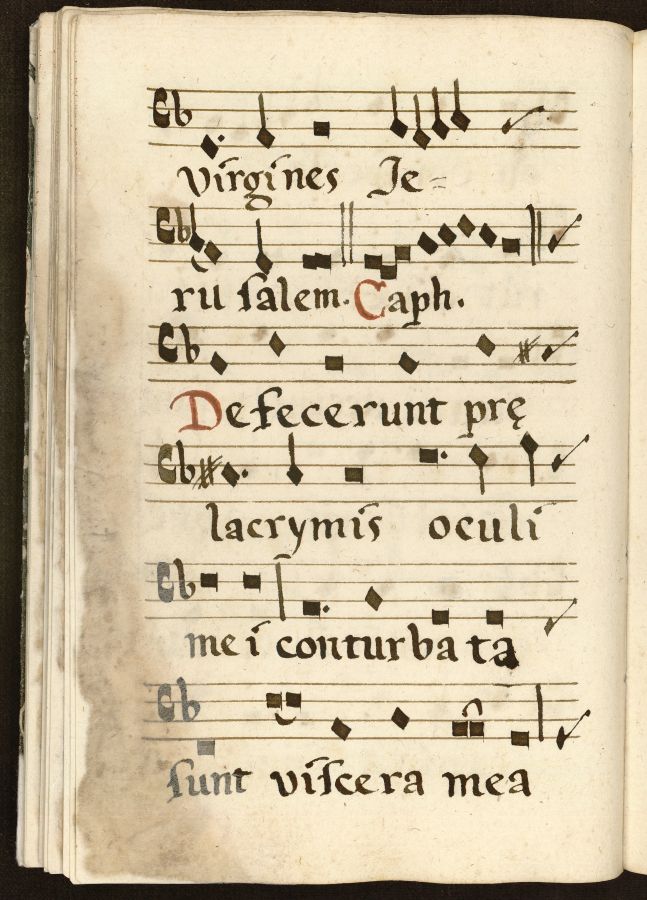 virgines Je=
ru salem. Caph.
Defecerunt prę
lacrymis oculi
mei conturbata
sunt viscera mea